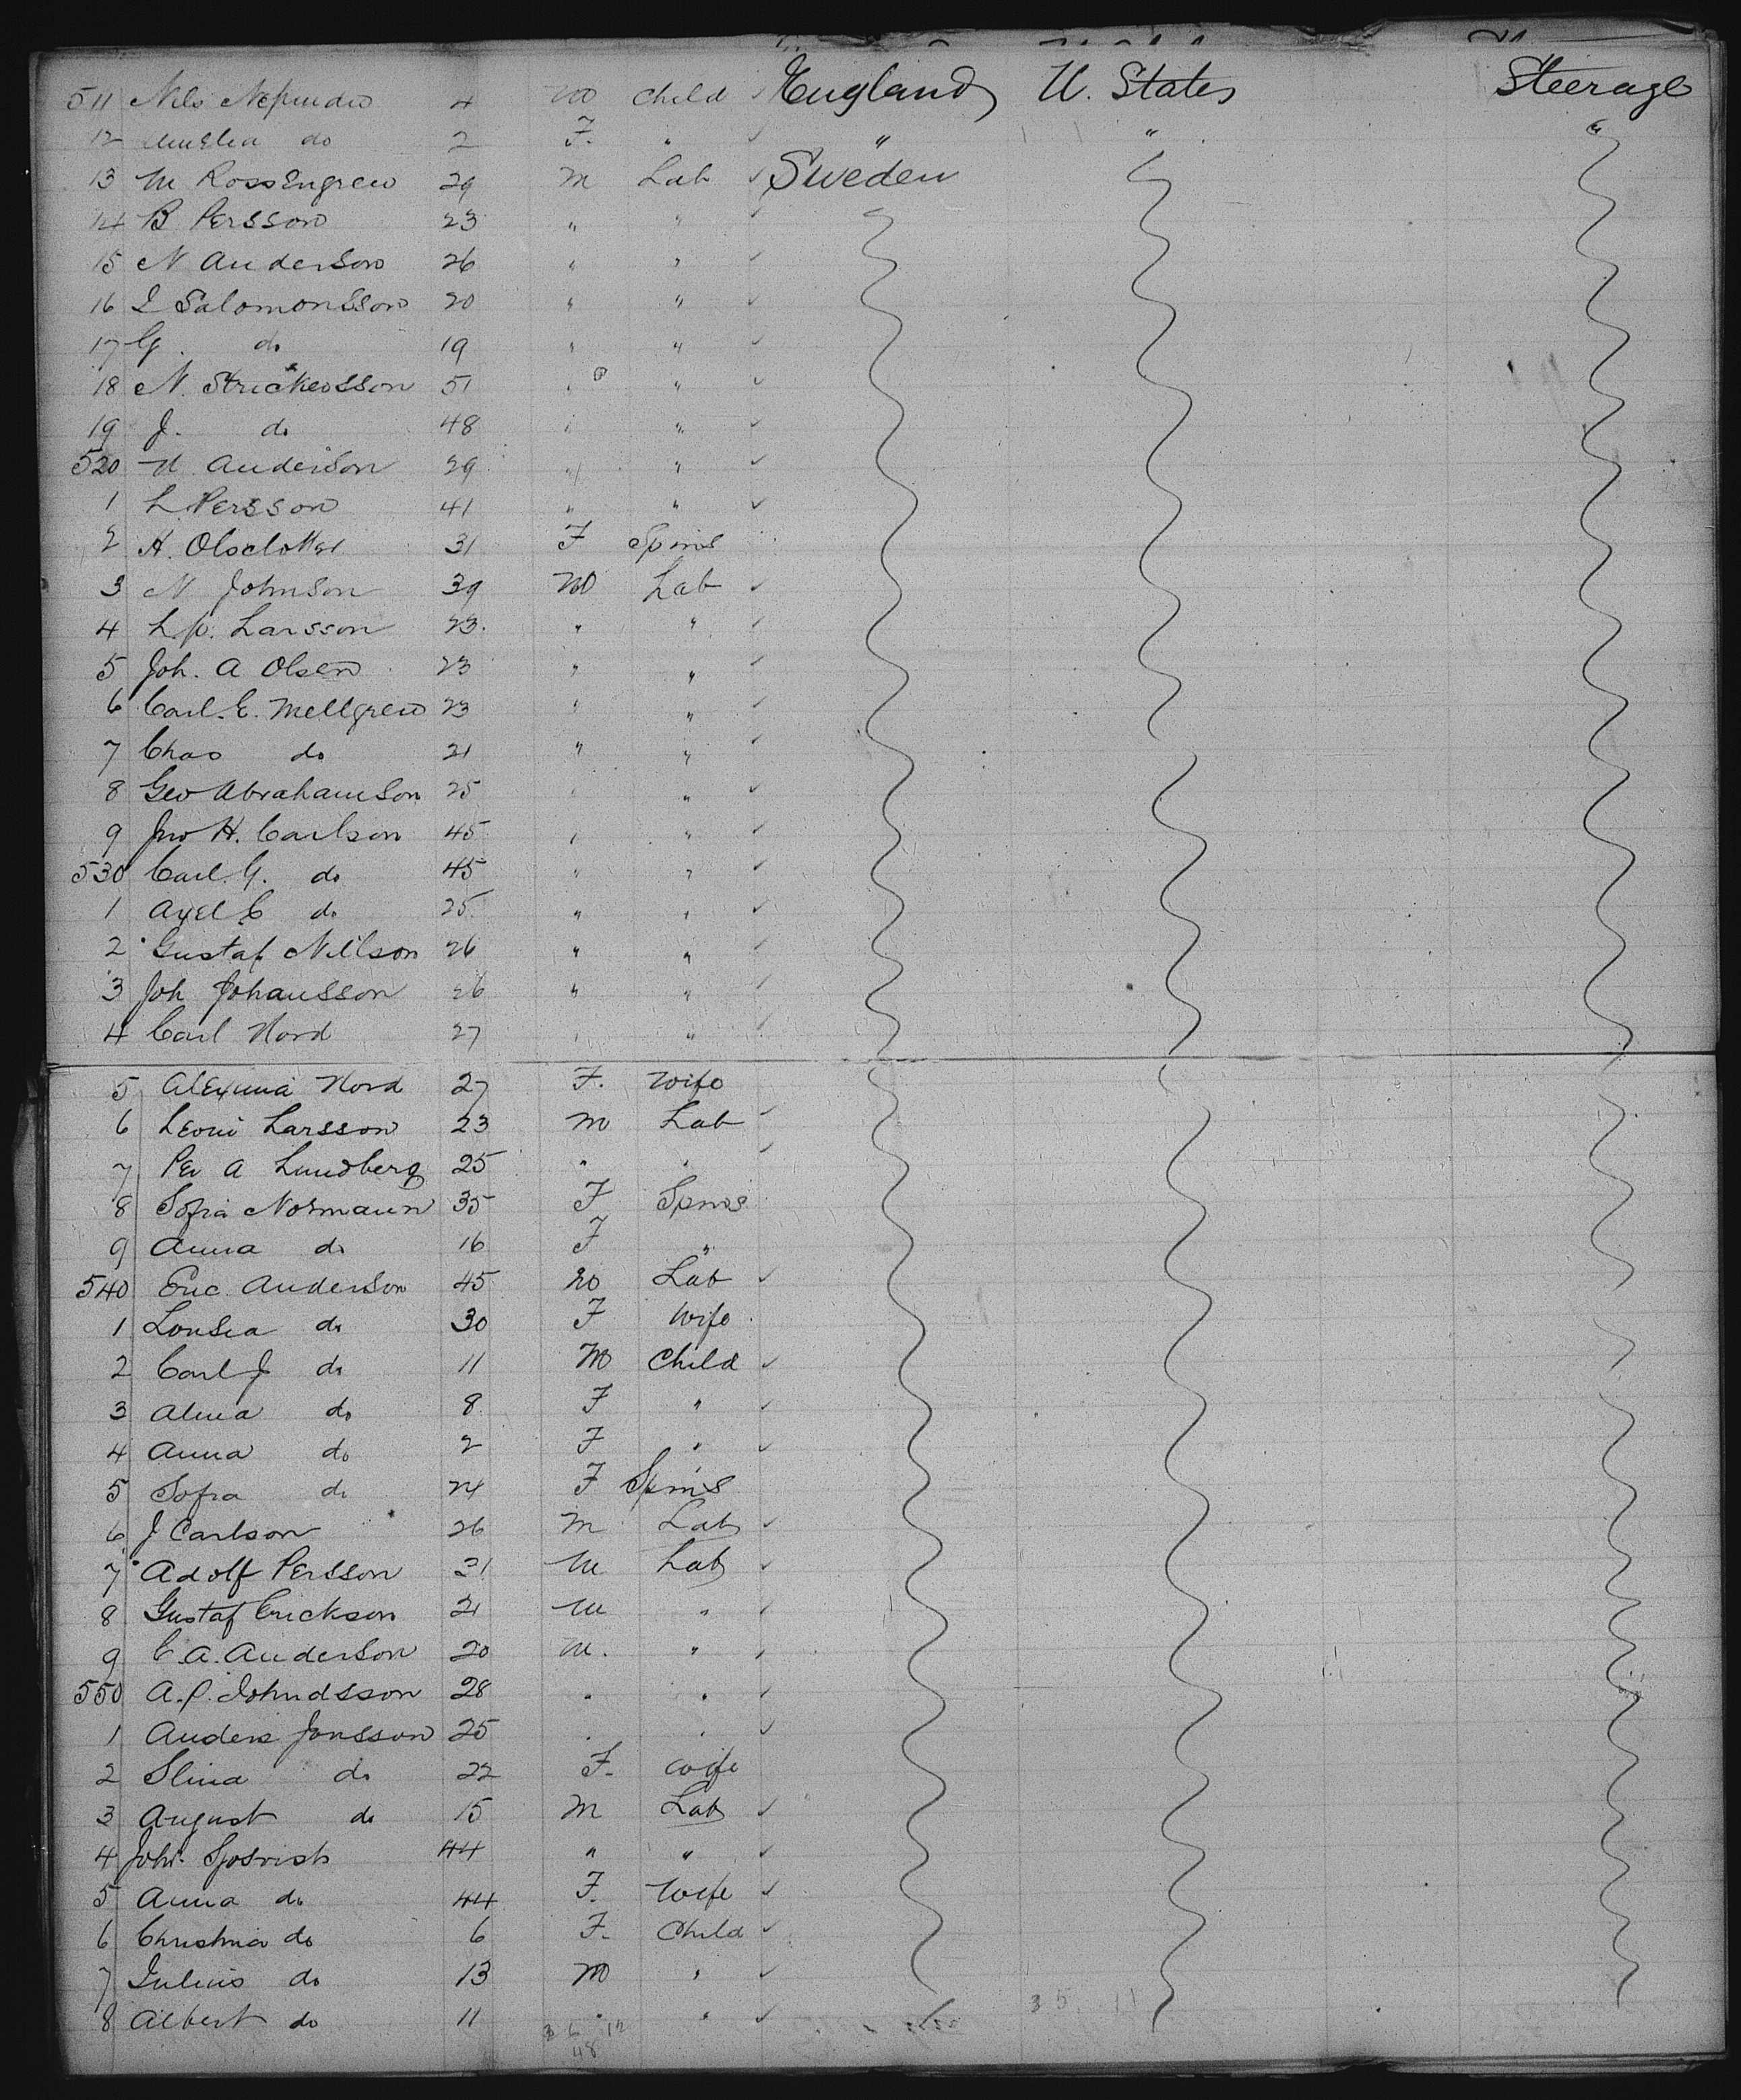 511 Nils 4 M Child England U. States Steerage
12 Amelia do 2 F. " " " "
13 M Rossengren 29 M Lab Sweden
14 B Persson 23 " "
15 N Anderson 26 " "
16 I Salomonsson 20 " "
17 G. do 19 " "
18 N. Strickersson 51 " "
19 J. do 48 " "
520 N Anderson 29 " "
1 L Persson 41 " "
2 A. Olsdotter 31 F Spins
3 N Johnson 39 M Lab
4 L. p. Larsson 23. " "
5 Joh. A Olsen 23 " "
6 Carl. E. Mellgren 23 " "
7 Chas do 21 " "
8 Geo Abrahamson 25 " "
9 Jno H. Carlson 45 " "
530 Carl. G. do 45 " "
1 Axel C do 25 " "
2 Gustaf Nillson 26 " "
3 Joh Johansson 26 " "
4 Carl Nord 27 " "
5 Nord 27 F. Wife
6 Larsson 23 M Lab
7 Per A Lundberg 25 " "
8 Sofia Normann 35 F Spins
9 Anna do 16 F "
540 Eric Anderson 45 M Lab
1 Lousia do 30 F Wife
2 Carl J do 11 M Child
3 Alma do 8 F "
4 Anna do 2 F "
5 Sofia do 24 F Spins
6 J Carlson 26 M Lab
7 Adolf Persson 31 M Lab
8 Gustaf Erickson 21 M "
9 C. A. Anderson 20 M. "
550 A. P. Johndsson 28 " "
1 Anders Jonsson 25 " "
2 Slina do 22 F. Wife
3 August do 15 M Lab
4 Joh. 44 " "
5 Anna do 44 F. Wife
6 Christina do 6 F. Child
7 Julius do 13 M "
8 Albert do 11 " "
36 12 35 11
48